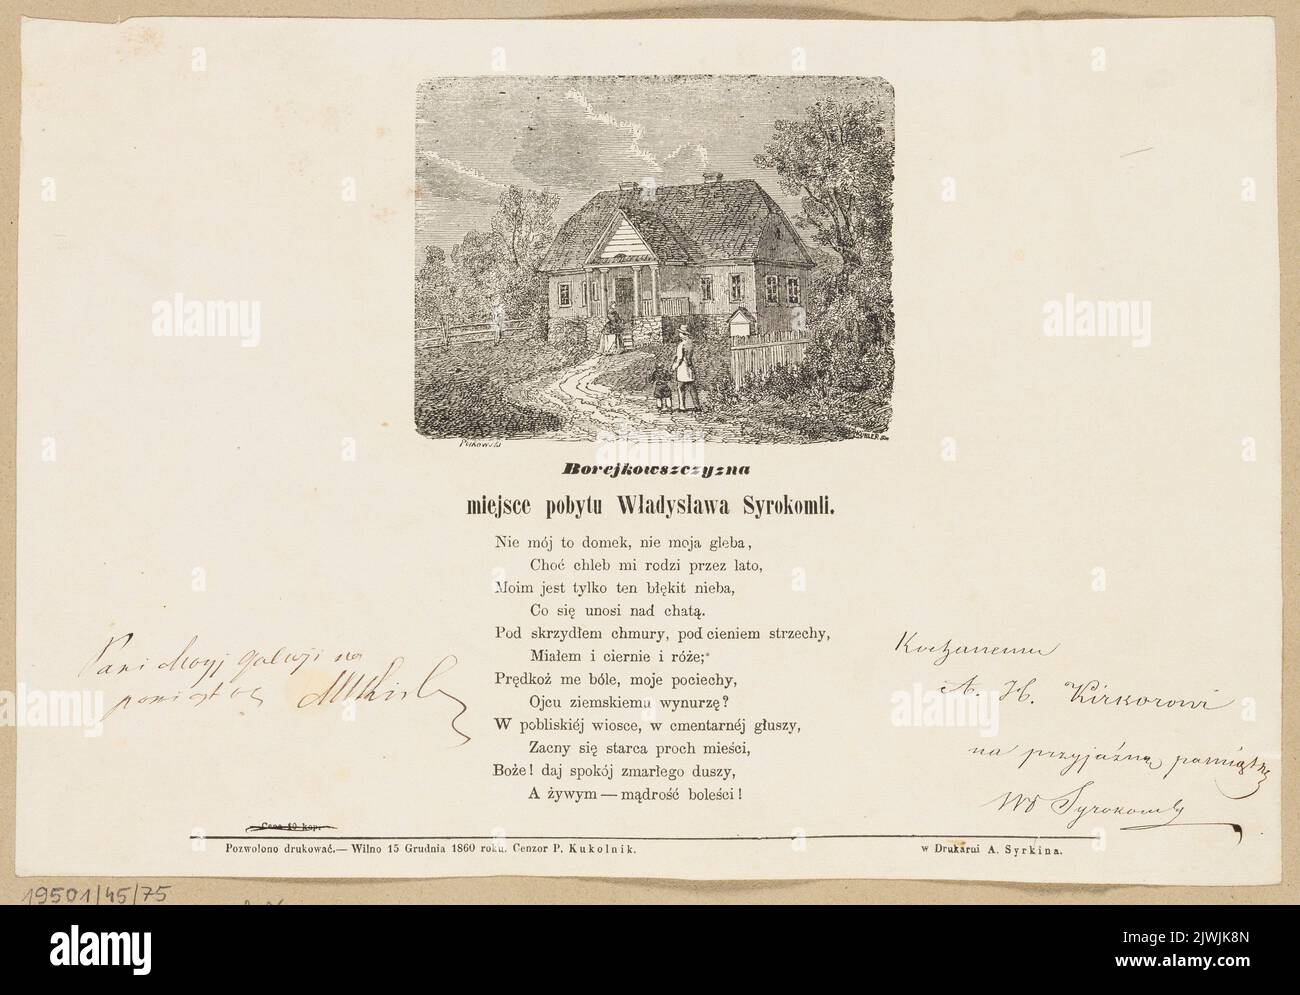 Piskowski
Borejkowszczyzna
miejsce pobytu Władysława Syrokomli.
Nie mój to domek, nie moja gleba,
Choć chleb mi rodzi przez lato,
Moim jest tylko ten błękit nieba,
Co się unosi nad chatą.
Pod skrzydłem chmury, pod cieniem strzechy,
Miałem i ciernie i róże;
Prędkoż me bóle, moje pociechy,
Ojcu ziemskiemu wynurzę?
W pobliskiéj wiosce, w cmentarnéj głuszy,
Zacny się starca proch mieści,
Boże! daj spokój zmarłego duszy,
A żywym — mądrość boleści!
na
Kochanemu
A. H. Kirkorowi
na przyjaźną pamiątkę
Wł Syrokomla
Cena 10 kop.
Pozwolono drukować.— Wilno 15 Grudnia 1860 roku. Cenzor P. Kukolnik.
w Drukarni A. Syrkina.
19501/45/75
alamy
Image ID: 2WJK8N
www.alamy.com